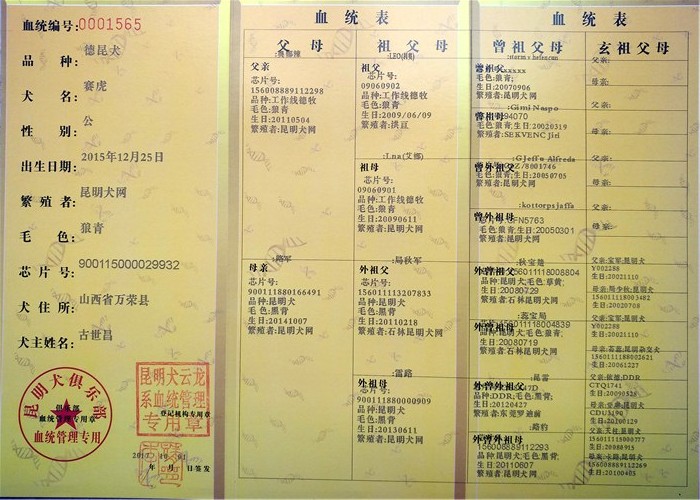 血统编号:0001565
品 种: 德昆犬
犬 名: 赛虎
性 别: 公
出生日期: 2015年12月25日
繁殖者: 昆明犬网
毛 色: 狼青
芯片号: 900115000029932
犬住所: 山西省万荣县
犬主姓名: 古世昌
昆明犬俱乐部
俱乐部
血统管理专用章
血统管理专用
昆明犬云龙
系血统管理
登记机构专用章
专用章
年 月 日签发
血统表
父母
父亲
芯片号:
156008889112298
品种:工作线德牧
毛色:狼青
生日:20110504
繁殖者:昆明犬网
:路军
母亲
芯片号:
900111880166491
品种:昆明犬
毛色:黑背
生日:20141007
繁殖者:昆明犬网
祖父母
祖父
芯片号:
09060902
品种:工作线德牧
毛色:狼青
生日:2009/06/09
繁殖者:洪亘
:Lna(艾娜)
祖母
芯片号:
09060901
品种:工作线德牧
毛色:狼青
生日:20090611
繁殖者:昆明犬网
:局秋军
外祖父
芯片号:
156011113207833
品种:昆明犬
毛色:黑背
生日:20110218
繁殖者:石林昆明犬网
:雷路
外祖母
芯片号:
900118880000909
品种:昆明犬
毛色:黑背
生日:20130611
繁殖者:昆明犬网
血统表
曾祖父母
曾祖父
毛色:狼青
生日:20070906
繁殖者:昆明犬网
:Gimi Naspo
曾祖母
毛色:狼青;生日:20020319
繁殖者:SEKVENC Jiri
:GJeffu Alfreda
曾外祖父
毛色:狼青;生日:20050705
繁殖者:昆明犬网
:kottorps jaffa
曾外祖母
毛色:狼青;生日:20050301
繁殖者:昆明犬网
:秋宝楚
外曾祖父
156011118008804
品种:昆明犬;毛色:草黄;
生日:20080729
繁殖者:石林昆明犬网
:磊宝局
外曾祖母
156011118004839
品种:昆明犬;毛色:黑背;
生日:20080719
繁殖者:石林昆明犬网
:昆雷
外曾外祖父
品种:DDR;毛色:黑背;
生日:20120427
繁殖者:东莞罗迪前
:路豹
外曾外祖母
156008889112293
品种:昆明犬;毛色:黑背;
生日:20110607
繁殖者:昆明犬网
玄祖父母
父亲:
母亲:
父亲:
母亲:
父亲:
母亲:
父亲:
母亲:
父亲:宝军:昆明犬
Y002288
生日:20021110
156011118003482
生日:20020708
父亲:宝军:昆明犬
Y002288
生日:20021110
156011118802621
生日:20061227
CTQ1741
生日:20090528
生日:20100129
156011115000777
生日:20080915
156008889112269
生日:20100405